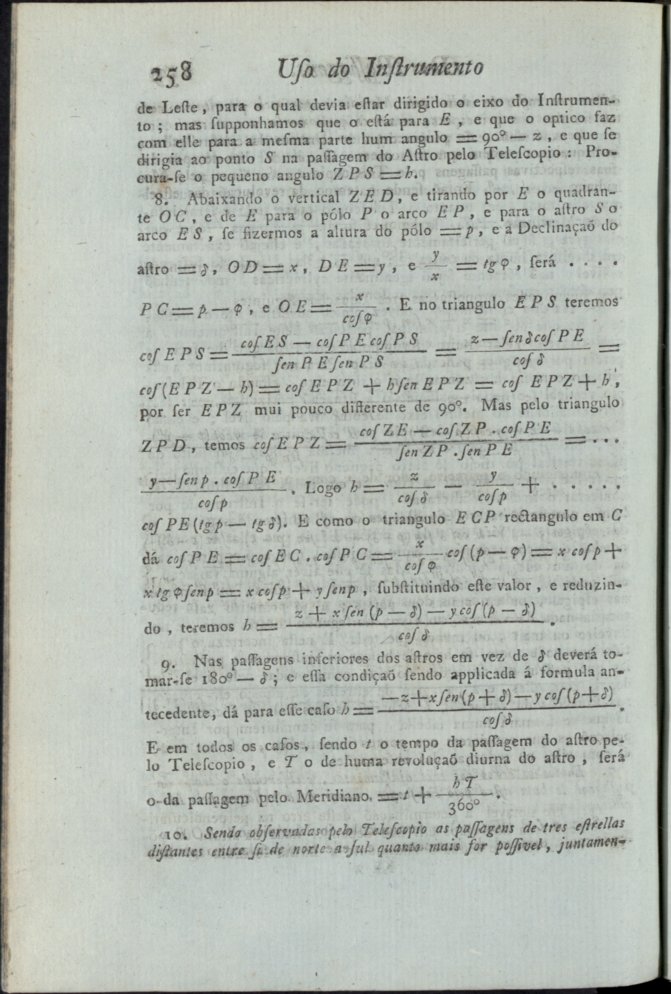 258 Uſo do Inſtrumento
de Leſte, para o qual devia eſtar dirigido o eixo do Inſtrumen-
to ; mas ſupponhamos que o eſtá para E , e que o optico faz
com elle para a meſma parte hum angulo = 90° — z , e que ſe
dirigia ao ponto S na paſſagem do Aſtro pelo Teleſcopio : Pro-
cura-ſe o pequeno angulo Z P S = h.
8. Abaixando o vertical Z E D, e tirando por E o quadran-
te O C , e de E para o pólo P o arco E P , e para o aſtro S o
arco E S , ſe fizermos a altura do pólo = p , e a Declinaçaõ do
aſtro = δ, O D = x , D E = y , e y/x = tg φ , ſerá . . . .
P C = p — φ , e O E = x/coſ φ . E no triangulo E P S teremos
coſ E P S = (coſ E S — coſ P E coſ P S)/(ſen P E ſen P S) = (z — ſen δ coſ P E)/(coſ δ) =
coſ (E P Z — h) = coſ E P Z + h ſen E P Z = coſ E P Z + h ,
por ſer E P Z mui pouco differente de 90°. Mas pelo triangulo
Z P D , temos coſ E P Z = (coſ Z E — coſ Z P . coſ P E)/(ſen Z P . ſen P E) = . . .
(y — ſen p . coſ P E)/(coſ p) . Logo h = z/coſ δ — y/coſ p + . . . . .
coſ PE (tg p — tg δ). E como o triangulo E C P rectangulo em C
dá coſ P E = coſ E C . coſ P C = x/coſ φ coſ (p — φ) = x coſ p +
x tg φ ſen p = x coſ p + y ſen p , ſubſtituindo eſte valor , e reduzin-
do , teremos h = (z + x ſen (p — δ) — y coſ (p — δ))/(coſ δ) .
9. Nas paſſagens inferiores dos aſtros em vez de δ deverá to-
mar-ſe 180° — δ ; e eſſa condiçaõ ſendo applicada á formula an-
tecedente, dá para eſſe caſo h = (— z + x ſen (p + δ) — y coſ (p + δ))/(coſ δ) .
E em todos os caſos , ſendo t o tempo da paſſagem do aſtro pe-
lo Teleſcopio , e T o de huma revoluçaõ diurna do aſtro , ſerá
o da paſſagem pelo Meridiano = t + h T/360° .
10. Sendo obſervadas pelo Teleſcopio as paſſagens de tres eſtrellas
diſtantes entre ſi de norte a ſul quanto mais for poſſivel , juntamen-